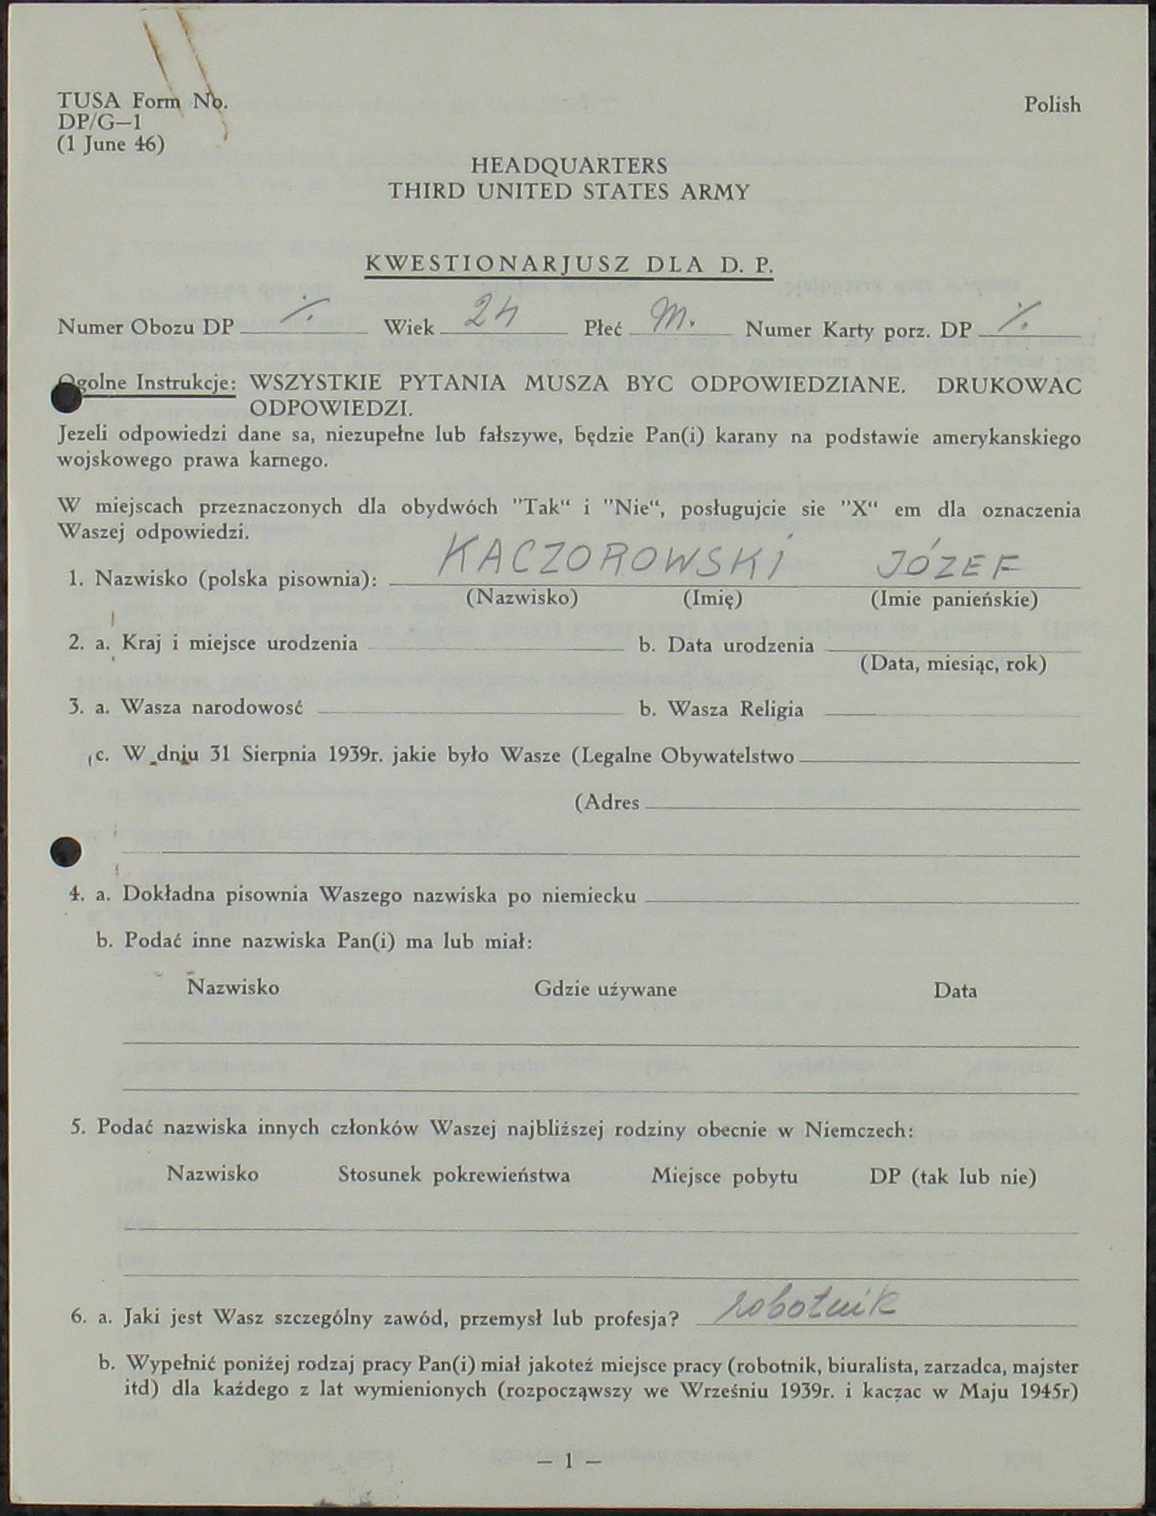 TUSA Form No.
Polish
DP/G—1
(1 June 46)
HEADQUARTERS
THIRD UNITED STATES ARMY
KWESTIONARJUSZ DLA D. P.
Numer Obozu DP ./. Wiek 24 Płeć M. Numer Karty porz. DP ./.
Ogolne Instrukcje: WSZYSTKIE PYTANIA MUSZA BYC ODPOWIEDZIANE. DRUKOWAC
ODPOWIEDZI.
Jezeli odpowiedzi dane sa, niezupełne lub fałszywe, będzie Pan(i) karany na podstawie amerykanskiego
wojskowego prawa karnego.
W miejscach przeznaczonych dla obydwóch "Tak" i "Nie", posługujcie sie "X" em dla oznaczenia
Waszej odpowiedzi.
1. Nazwisko (polska pisownia): KACZOROWSKI JÓZEF
(Nazwisko) (Imię) (Imie panieńskie)
2. a. Kraj i miejsce urodzenia b. Data urodzenia
(Data, miesiąc, rok)
3. a. Wasza narodowosć b. Wasza Religia
c. W dniu 31 Sierpnia 1939r. jakie było Wasze (Legalne Obywatelstwo
(Adres
4. a. Dokładna pisownia Waszego nazwiska po niemiecku
b. Podać inne nazwiska Pan(i) ma lub miał:
Nazwisko Gdzie używane Data
5. Podać nazwiska innych członków Waszej najbliższej rodziny obecnie w Niemczech:
Nazwisko Stosunek pokrewieństwa Miejsce pobytu DP (tak lub nie)
6. a. Jaki jest Wasz szczególny zawód, przemysł lub profesja? robotnik
b. Wypełnić poniżej rodzaj pracy Pan(i) miał jakoteż miejsce pracy (robotnik, biuralista, zarzadca, majster
itd) dla każdego z lat wymienionych (rozpocząwszy we Wrześniu 1939r. i kaczac w Maju 1945r)
— 1 —